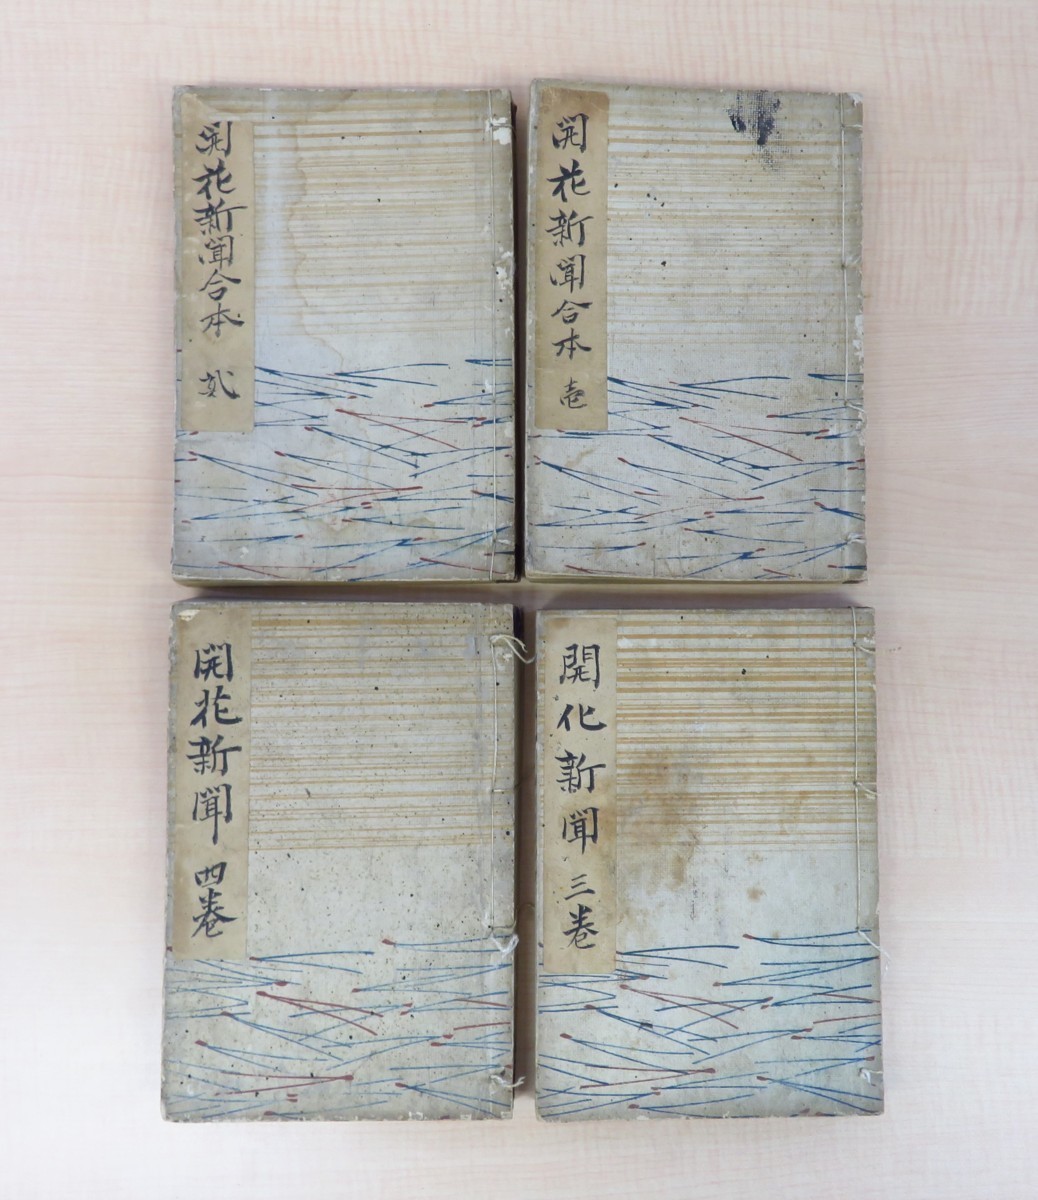 開花新聞合本 壱
開花新聞合本 弐
開化新聞 三巻
開花新聞 四巻